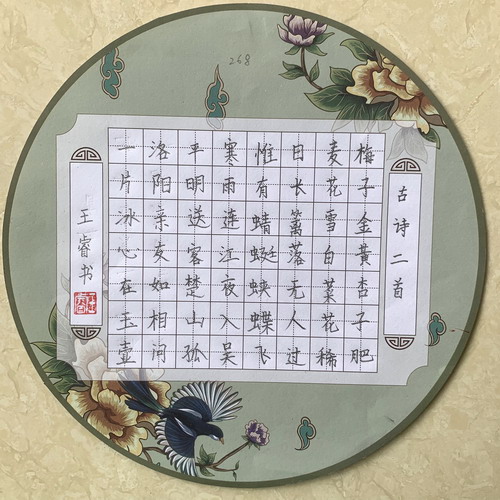 268
古诗二首
梅子金黄杏子肥
麦花雪白菜花稀
日长篱落无人过
惟有蜻蜓蛱蝶飞
寒雨连江夜入吴
平明送客楚山孤
洛阳亲友如相问
一片冰心在玉壶
王睿书